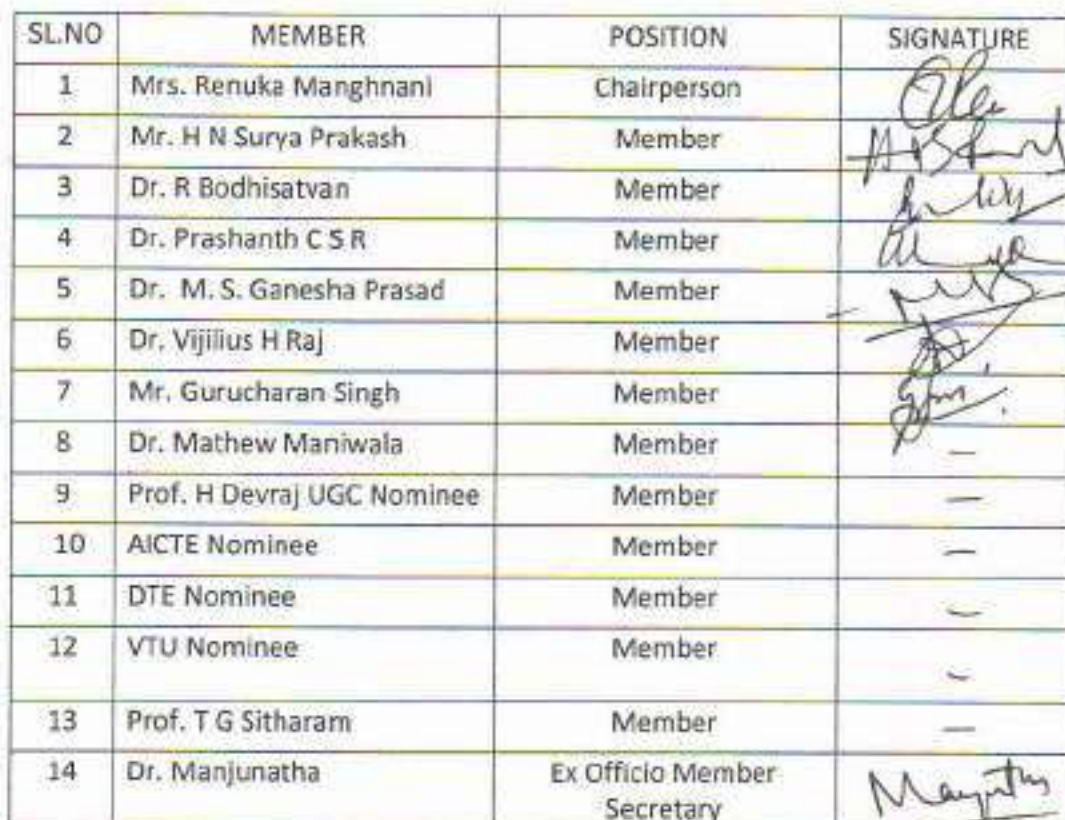 SL.NO MEMBER POSITION SIGNATURE
1 Mrs. Renuka Manghnani Chairperson
2 Mr. H N Surya Prakash Member
3 Dr. R Bodhisatvan Member
4 Dr. Prashanth C S R Member
5 Dr. M. S. Ganesha Prasad Member
6 Dr. Vijilius H Raj Member
7 Mr. Gurucharan Singh Member
8 Dr. Mathew Maniwala Member —
9 Prof. H Devraj UGC Nominee Member —
10 AICTE Nominee Member —
11 DTE Nominee Member —
12 VTU Nominee Member —
13 Prof. T G Sitharam Member —
14 Dr. Manjunatha Ex Officio Member
Secretary